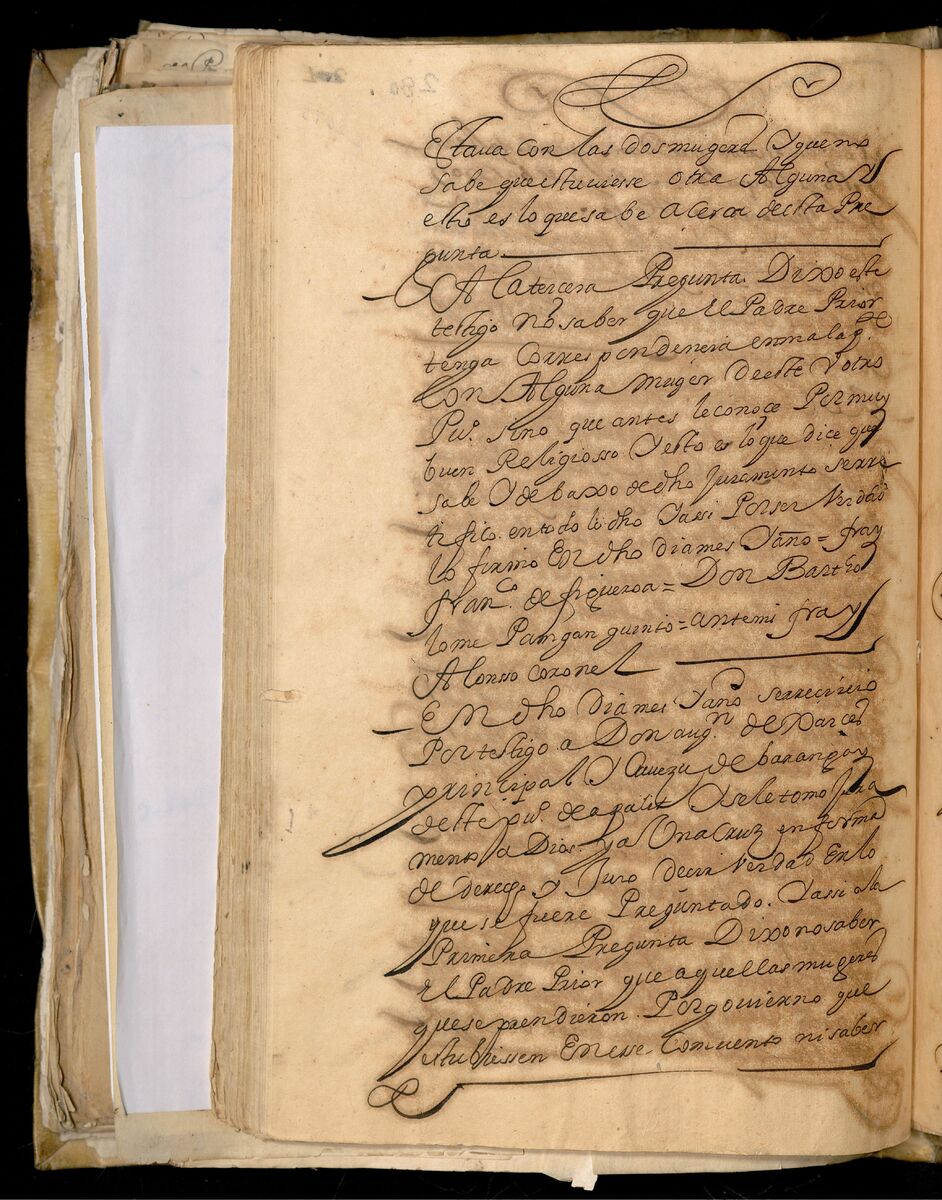 Estaua con las dos mugeres Y que no
sabe que estuuiesse otra Alguna Y
esto es lo que sabe acerca desta Pre
gunta
A la tercera Pregunta Dixo este
testigo no saber que El Padre Prior
tenga Correspondencia en mala fe
con Alguna muger de este Y otro
Pu.º sino que antes le conoçe Por muy
buen Religiosso Y esto es lo que dice que
sabe Y de baxo de dho Juramento se rra
tifico en todo lo dho Y assi Por ser Verdad
lo firmo En dho dia mes Y año = fray
fran.co de figueroa = Don Bartho
lome Pamgan quinto = ante mi fray
Alonsso coronel
En dho dia mes Y año se rreciuio
Por testigo a Don aug.n de Garces
principal Y Caueza de barangay
deste pu.º de agalit Y se le tomo Jura
mento a Dios y a Una Cruz en forma
de derecho y Juro decir Verdad En lo
que se fuere Preguntado. Y assi a la
Primera Pregunta Dixo no saber
El Padre Prior que aquellas mugeres
que se prendieron Por gouierno que
estubiessen En esse Conuento ni saber